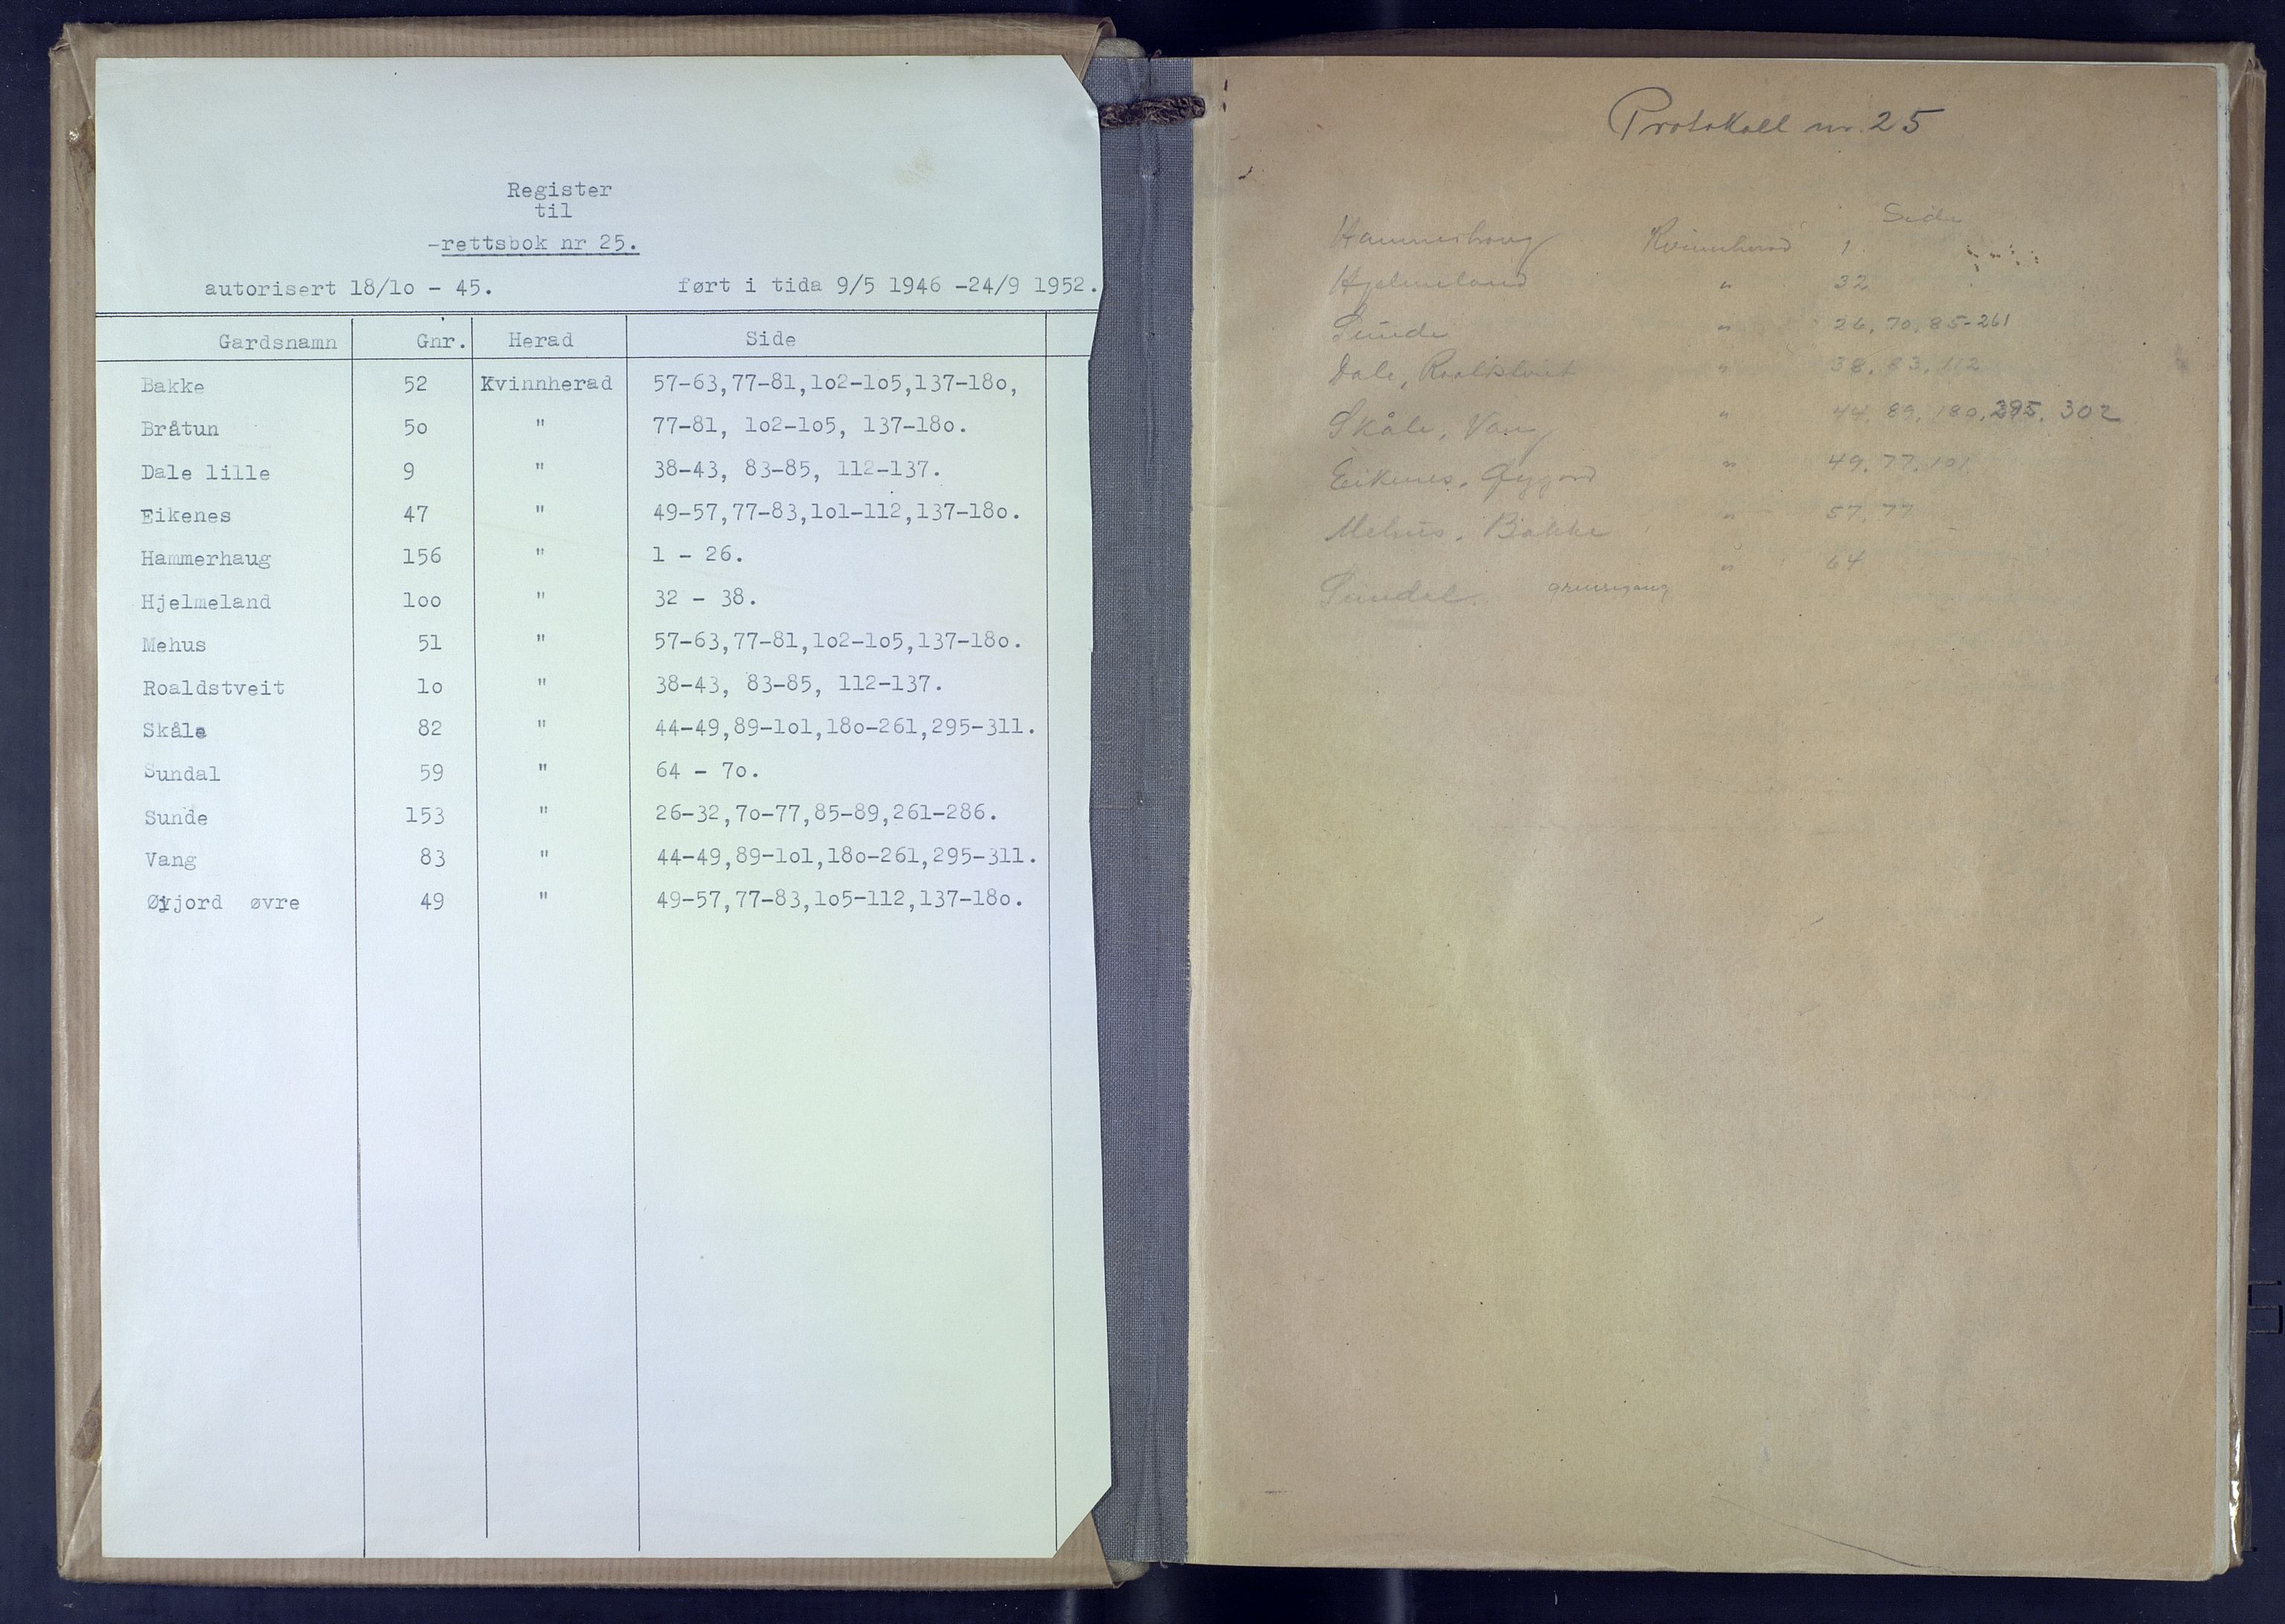 Register
til
-rettsbok nr 25.
autorisert 18/1o - 45. ført i tida 9/5 1946 -24/9 1952.
Gardsnamn Gnr. Herad Side
Bakke 52 Kvinnherad 57-63,77-81,1o2-1o5,137-18o,
Bråtun 5o " 77-81, 1o2-1o5, 137-18o.
Dale lille 9 " 38-43, 83-85, 112-137.
Eikenes 47 " 49-57,77-83,1o1-112,137-18o.
Hammerhaug 156 " 1 - 26.
Hjelmeland 1oo " 32 - 38.
Mehus 51 " 57-63,77-81,1o2-1o5,137-18o.
Roaldstveit 1o " 38-43, 83-85, 112-137.
Skåle 82 " 44-49,89-1o1,18o-261,295-311.
Sundal 59 " 64 - 7o.
Sunde 153 " 26-32,7o-77,85-89,261-286.
Vang 83 " 44-49,89-1o1,18o-261,295-311.
Øyjord øvre 49 " 49-57,77-83,1o5-112,137-18o.
Protokoll nr. 25
Side
Hammerhaug Kvinnherad 1
Hjelmeland " 32
Sunde " 26, 70, 85-261
Dale, Roaldstveit " 38, 83, 112
Skåle, Vang " 44, 89, 180, 295, 302
Eikenes, Øygord " 49, 77, 101
Mehus, Bakke " 57, 77
Sundal. grensegang " 64